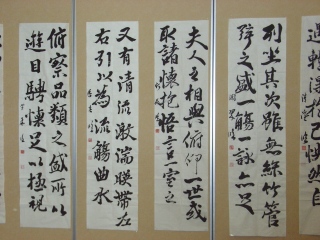 遇暫得於己快然自
列坐其次雖無絲竹管
弦之盛一觴一詠亦足
夫人之相與俯仰一世或
取諸懷抱悟言一室之
又有清流激湍映帶左
右引以為流觴曲水
俯察品類之盛所以
遊目騁懷足以極視